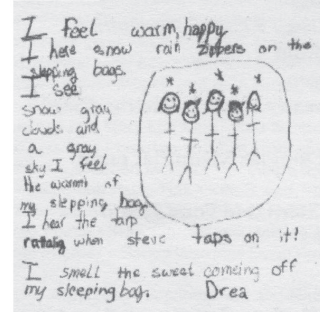 I feel warm, happy
I here snow rain zippers on the
slepping bags.
I see
snow gray
clouds and
a gray
sky I feel
the warmt of
my slepping bag.
I hear the tarp
rattalig when steve taps on it!
I smell the sweet comeing off
my sleeping bag. Drea